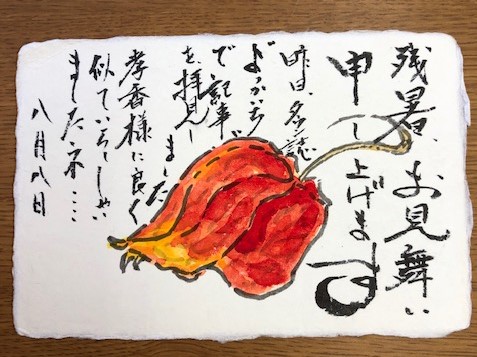 残暑、お見舞い
申し上げます
昨日、タウン誌
よっかいち
で記事
を、拝見し
ました
孝香様に良く
似ていらっしゃい
ましたネ….
八月八日